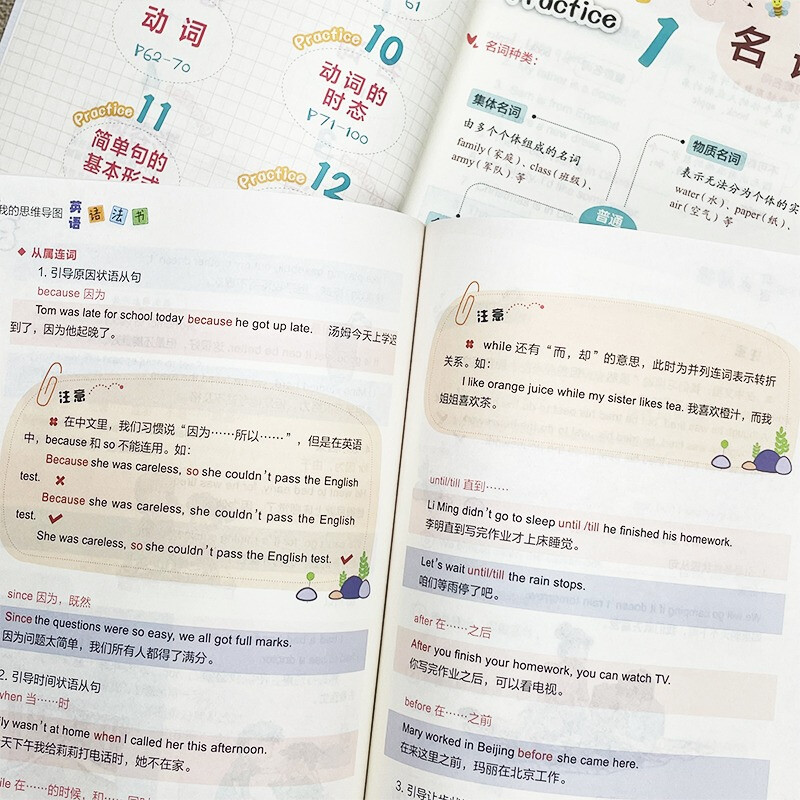 61
动词
P62-70
Practice 10
动词的
时态
P71-100
Practice 11
简单句的
基本形式
Practice 12
Practice 1
名词
名词种类：
集体名词
由多个个体组成的名词
family(家庭)、class(班级)、
army(军队)等
物质名词
表示无法分为个体的实
water(水)、paper(纸)、
air(空气)等
普通
我的思维导图 英语 语法书
从属连词
1. 引导原因状语从句
because 因为
Tom was late for school today because he got up late. 汤姆今天上学迟
到了，因为他起晚了。
注意
在中文里，我们习惯说“因为……所以……”，但是在英语
中，because 和 so 不能连用。如：
Because she was careless, so she couldn't pass the English
test. ✖
Because she was careless, she couldn't pass the English
test. ✔
She was careless, so she couldn't pass the English test. ✔
since 因为，既然
Since the questions were so easy, we all got full marks.
因为问题太简单，我们所有人都得了满分。
2. 引导时间状语从句
when 当……时
ly wasn't at home when I called her this afternoon.
天下午我给莉莉打电话时，她不在家。
ile 在……的时候，和……同时
注意
while 还有“而，却”的意思，此时为并列连词表示转折
关系。如：
I like orange juice while my sister likes tea. 我喜欢橙汁，而我
姐姐喜欢茶。
until/till 直到……
Li Ming didn't go to sleep until /till he finished his homework.
李明直到写完作业才上床睡觉。
Let's wait until/till the rain stops.
咱们等雨停了吧。
after 在……之后
After you finish your homework, you can watch TV.
你写完作业之后，可以看电视。
before 在……之前
Mary worked in Beijing before she came here.
在来这里之前，玛丽在北京工作。
3. 引导让步状